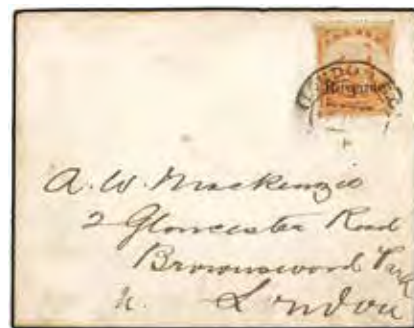 LONDON E.C.
A. W. Mackenzie
2 Gloucester Road
Brownswood Park
N. London